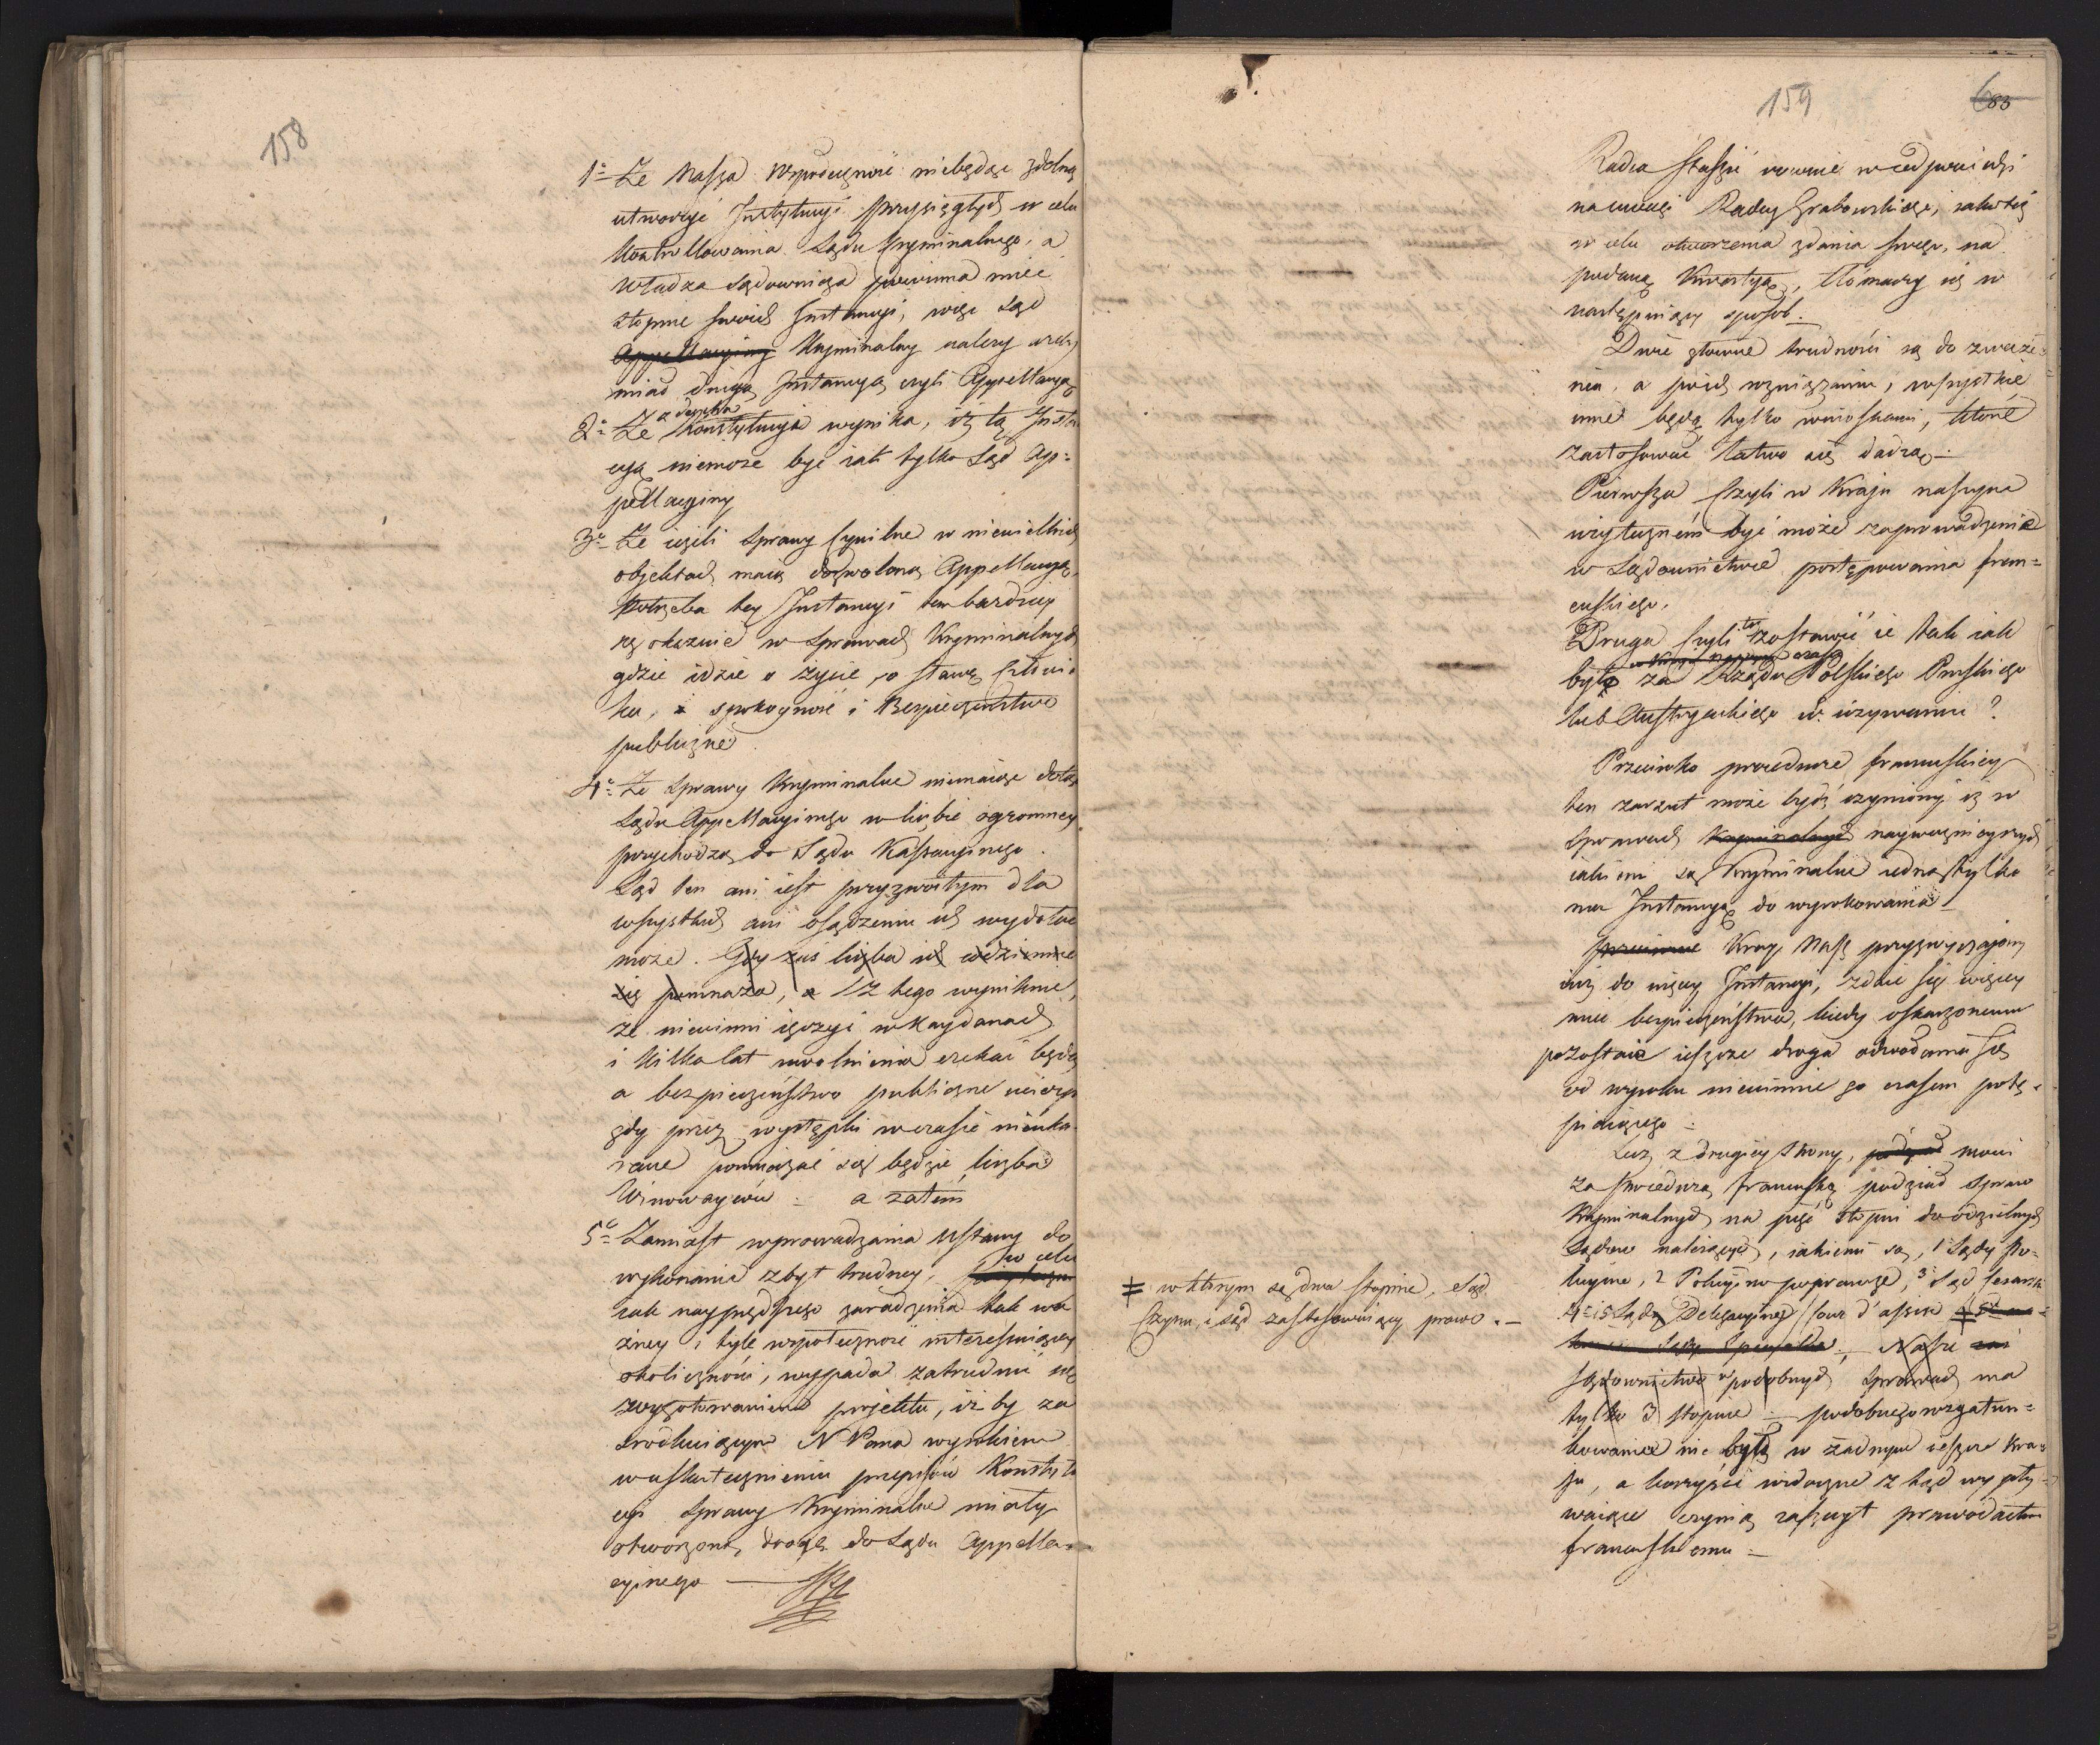 158
1º Że Nasza Współeczność niebędąc zdolną
utworzyć Instytucyi przysięgłych w celu
kontrollowania Sądu Kryminalnego, a
Władza sądownicza powinna mieć
stopnie swoich Instancyi, więc Sąd
Appellacyiny Kryminalny należy
miać drugą Instancyą czyli Appellacyą
2º Że z ducha
Konstytucyi wynika, iż tą Insta
cyą niemoże być iak tylko Sąd Ap=
pellacyiny
3º Że ieżeli Sprawy Cywilne w niewielkich
objektach maią dozwoloną Appellacyą,
Potrzeba tey Instancyi tem bardziey
się okazuie w Sprawach Kryminalnych
gdzie idzie o życie, o sławę Człowie
ka, i spokoyność i Bezpieczeństwo
publiczne.
4º Że Sprawy Kryminalne niemaiąc dotąd
Sądu Appellacyinego w liczbie ogromney
przychodzą do Sądu Kassacyinego.
Sąd ten ani iest przyzwoitym dla
wszystkich ani osądzeniu ich wydołać
może. Gdy zaś liczba ich codziennie
się pomnaża, a z tego wyniknie,
że niewinni ięczyć w kaydanach
i kilka lat uwolnienia czekać będą
a bezpieczeństwo publiczne ucierpi
gdy przez występki w czasie nieuka=
rane pomnażać się będzie liczba
Winowayców = a zatém
5º Zamiast wprowadzania Ustawy do
wykonania zbyt trudney, w celu
iak nayprędszego zaradzenia tak wa
żney i tyle współeczność interessuiącey
okoliczności, wypada zatrudnić się
wygotowaniem projektu, iż by za
N Pana wysokiem
w uskutecznieniu przepisów Konstytu
cyi Sprawy Kryminalne miały
otworzoną drogę do Sądu Appella=
cyinego —
159
683
Radca Staszic równie w odpowiedzi
na uwagi Radcy Grabowskiego, iako też
w celu otworzenia zdania swego, na
podaną Kwestyą, tłómaczy się w
następuiący sposób. —
Dwie główne trudności są do zważe=
nia, a po ich rozwiązaniu, wszystkie
inne będą tylko wnioskami, które
zastosować łatwo się dadzą —
Pierwsza Czyli w Kraju naszym
użytecznem być może zaprowadzenie
w Sądownictwie postępowania fran=
cuskiego.
Druga Czyli też zostawić ie tak iak
w Kraju naszym czasu
było za Rządu Polskiego Pruskiego
lub Austryackiego w używaniu?
Przeciwko procedurze francuskiey
ten zarzut może bydź czyniony iż w
Sprawach Kryminalnych nayważnieyszych
iakiemi są Kryminalne iedna tylko
ma Instancyą do wyrokowania —
przeciwnie Kray Nasz przyzwyczaiony
iuż do więcey Instancyi, zdaie się więcey
mieć bezpieczeństwa, kiedy oskarżonemu
pozostaie ieszcze droga odwołania się
od wyroku niewinnie go czasem potę=
piaiącego =
Lecz z drugiey strony, podział mówi
za procedurą francuską podział spraw
Kryminalnych na pięć stopni do oddzielnych
Sądów należących, iakiemi są, 1º Sądy Po=
licyine, 2 Policyino poprawcze, 3º Sąd Cesarski
4º i 5 Sądy Delegacyine Cour d'assise ‡
Sądy Specyalne —, Nasze
Sądownictwo w podobnych Sprawach ma
tylko 3 stopnie — podobnego rozgatun=
kowania nie było w żadnym ieszcze Kra=
ju, a korzyści widoczne ztąd wypły=
waiące czynią zaszczyt prawodactwu
francuskiemu —
‡ w którym są dwa stopnie, Sąd
Czynu, i sąd zastosowuiący prawo. —